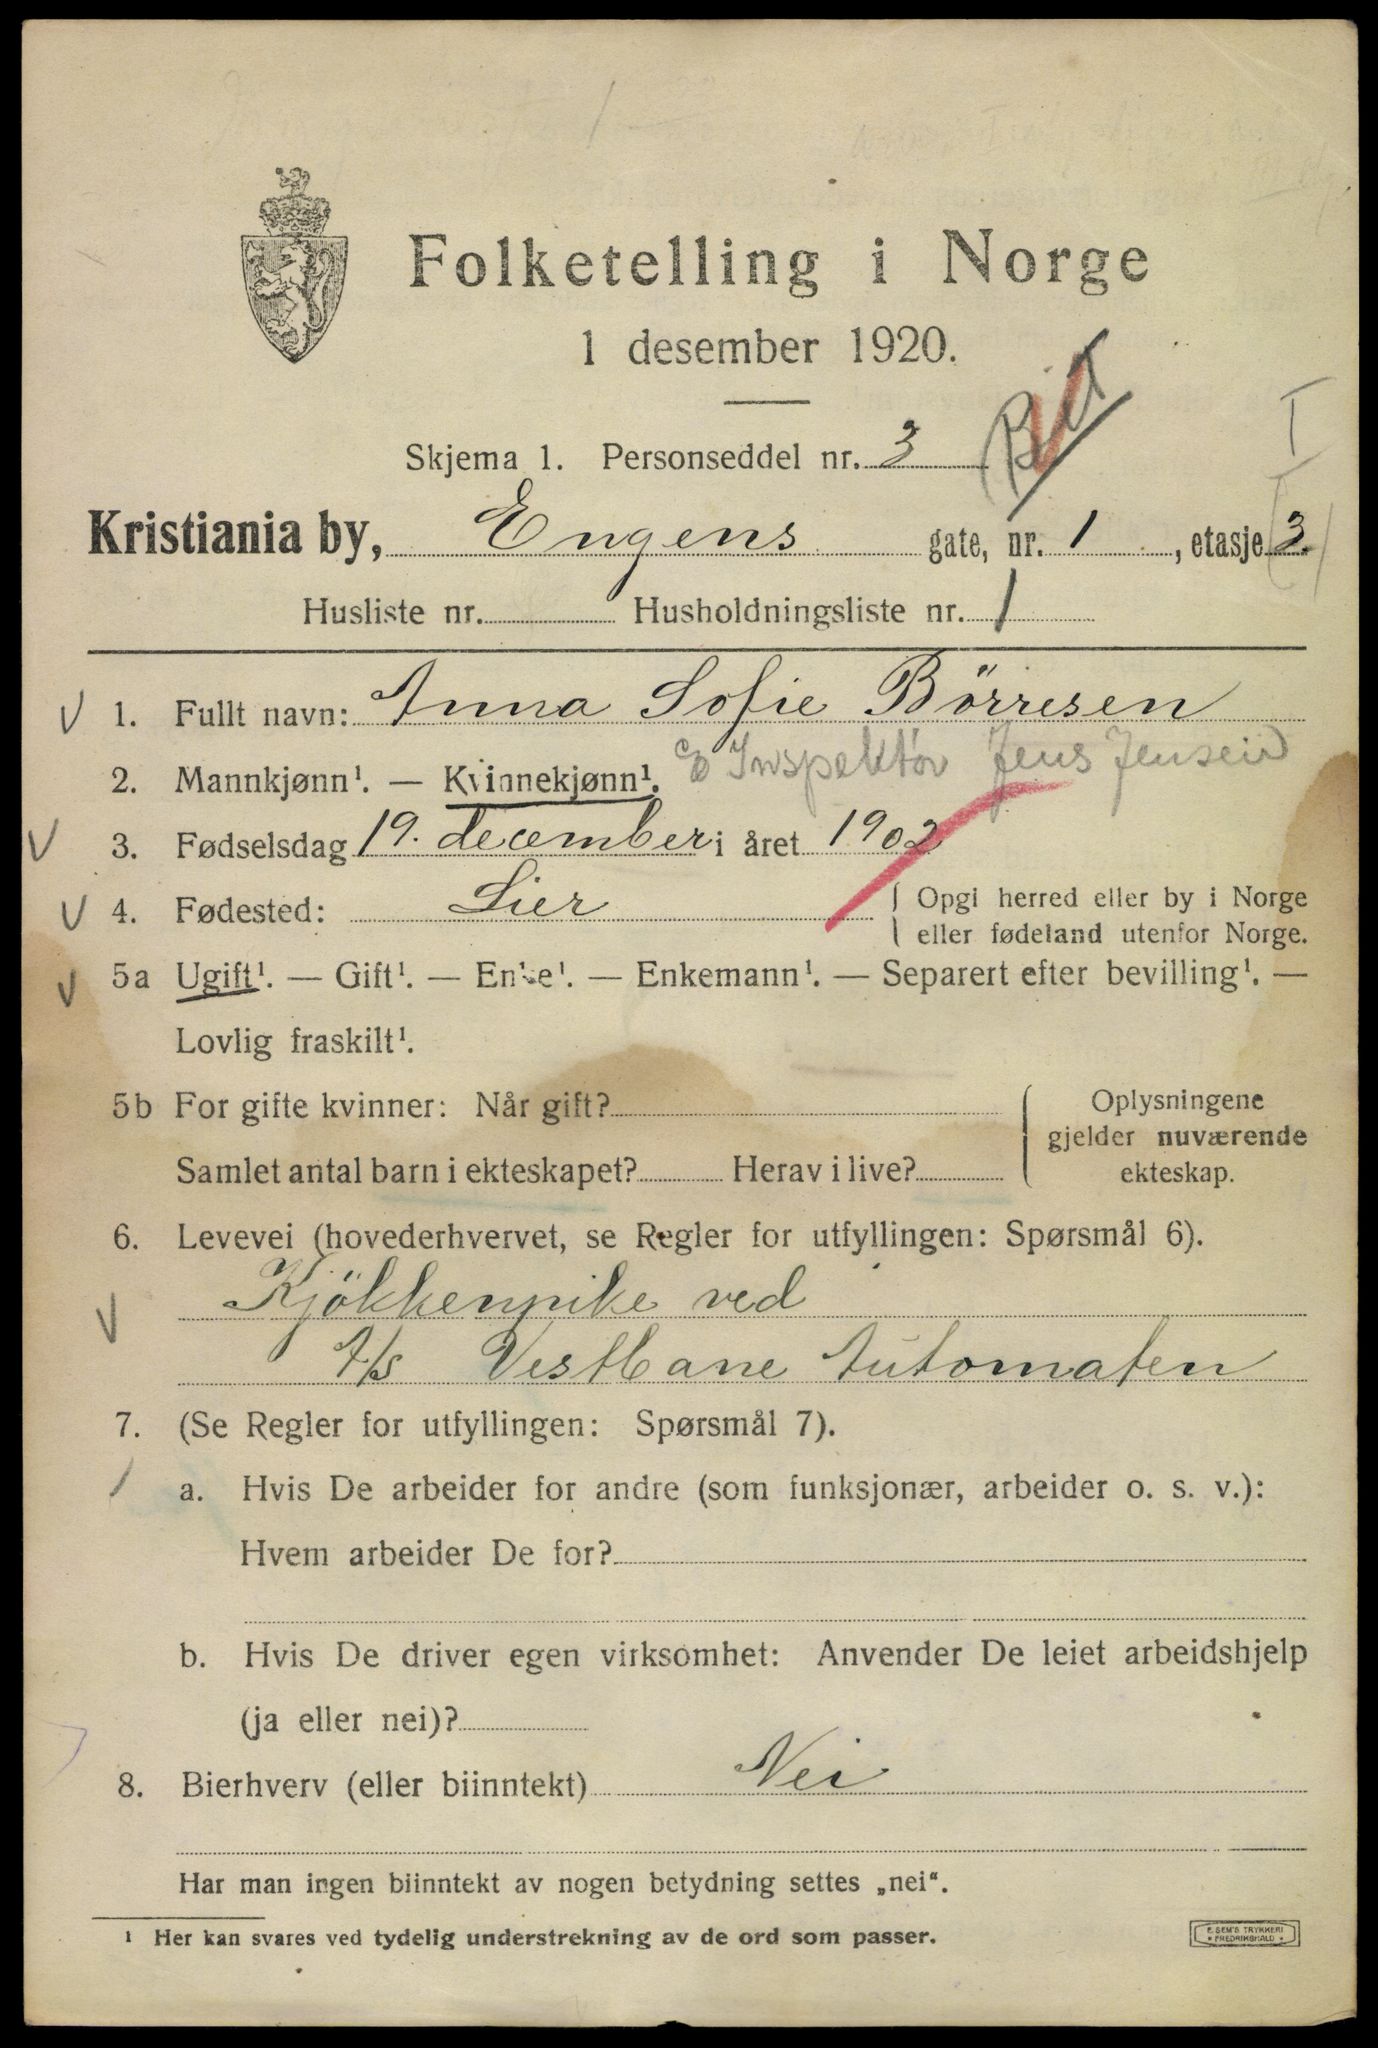 Folketelling i Norge
1 desember 1920.
Skjema 1. Personseddel nr. 3
I
Kristiania by, Engens gate, nr. 1, etasje 3.
Husliste nr. Husholdningsliste nr. 1
1. Fullt navn: Anna Sofie Börresen
2. Mannkjønn¹. — Kvinnekjønn¹. Inspektör Jens Jensen
3. Fødselsdag 19. december i året 1902
4. Fødested: Lier { Opgi herred eller by i Norge
eller fødeland utenfor Norge.
5a Ugift¹. — Gift¹. — Enke¹. — Enkemann¹. — Separert efter bevilling¹. —
Lovlig fraskilt¹.
5b For gifte kvinner: Når gift? { Oplysningene
gjelder nuværende
Samlet antal barn i ekteskapet? Herav i live? ekteskap.
6. Levevei (hovederhvervet, se Regler for utfyllingen: Spørsmål 6).
Kjökkenpike ved
A/S Vestbane Automaten
7. (Se Regler for utfyllingen: Spørsmål 7).
a. Hvis De arbeider for andre (som funksjonær, arbeider o. s. v.):
Hvem arbeider De for?
b. Hvis De driver egen virksomhet: Anvender De leiet arbeidshjelp
(ja eller nei)?
8. Bierhverv (eller biinntekt) Nei
Har man ingen biinntekt av nogen betydning settes „nei“.
¹ Her kan svares ved tydelig understrekning av de ord som passer.
E. SEM'S TRYKKERI
FREDRIKSHALD